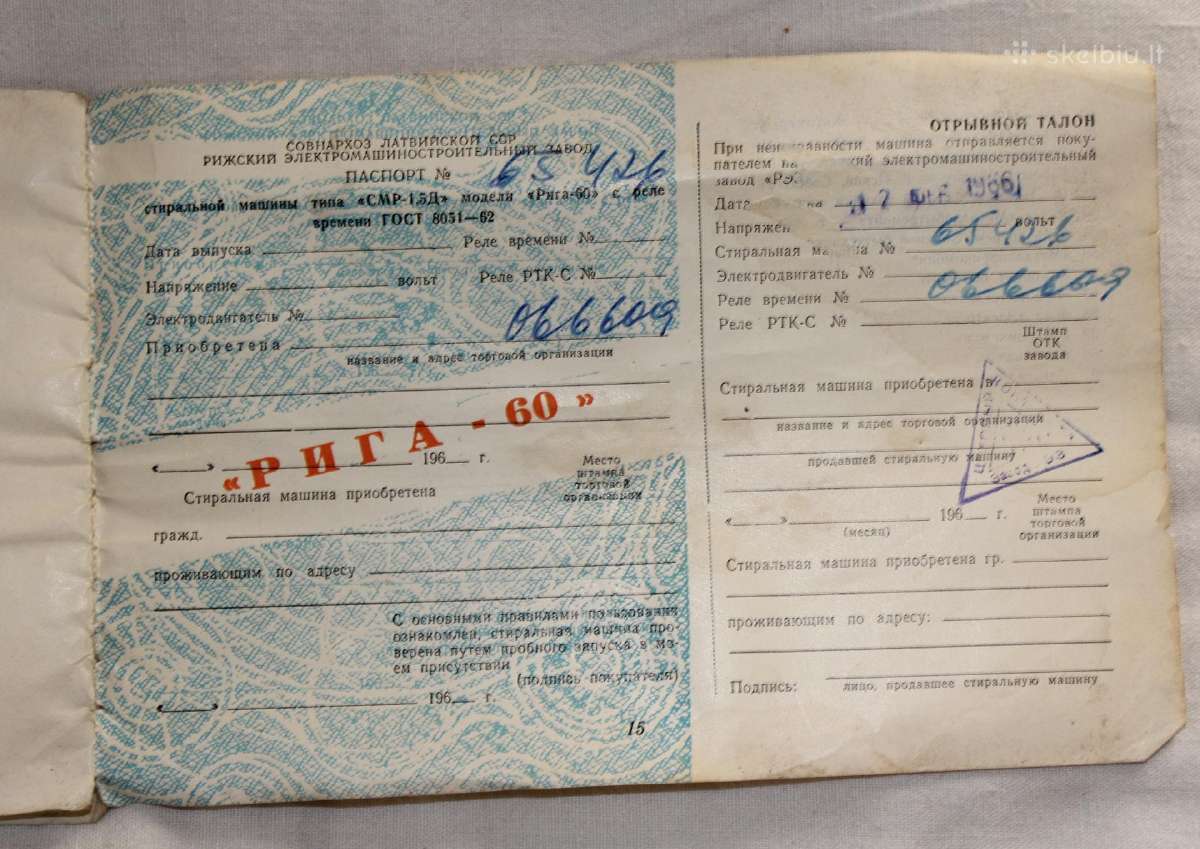 skelbiu.lt
СОВНАРХОЗ ЛАТВИЙСКОЙ ССР
РИЖСКИЙ ЭЛЕКТРОМАШИНОСТРОИТЕЛЬНЫЙ ЗАВОД
ПАСПОРТ № 65426
стиральной машины типа «СМР-1,5Д» модели «Рига-60» с реле
времени ГОСТ 8051—62
Дата выпуска Реле времени №
Напряжение вольт Реле РТК-С №
Электродвигатель № 066609
Приобретена
название и адрес торговой организации
«РИГА-60»
« » 196 г.
Место
штампа
торговой
организации
Стиральная машина приобретена
гражд.
проживающим по адресу
С основными правилами пользования
ознакомлен, стиральная машина про-
верена путем пробного запуска в мо-
ем присутствии
(подпись покупателя)
« » 196 г.
15
ОТРЫВНОЙ ТАЛОН
При неисправности машина отправляется поку-
пателем на электромашиностроительный
завод «РЭ
Дата
Напряжен вольт
Стиральная № 65426
Электродвигатель № 066609
Реле времени №
Реле РТК-С №
Штамп
ОТК
завода
Стиральная машина приобретена в
название и адрес торговой организации
продавшей стиральную машину
« » 196 г.
(месяц)
Место
штампа
торговой
организации
Стиральная машина приобретена гр.
проживающим по адресу:
Подпись:
лицо, продавшее стиральную машину